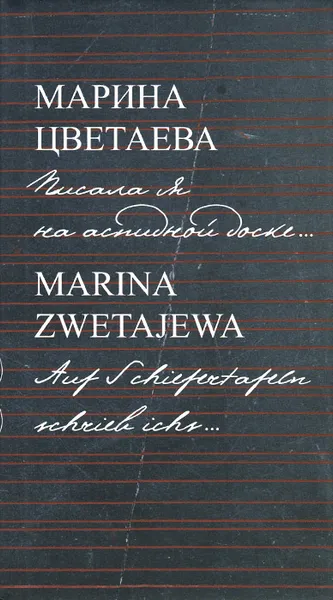 МАРИНА
ЦВЕТАЕВА
Писала я
на аспидной доске...
MARINA
ZWETAJEWA
Auf Schiefertafeln
schrieb ichs...